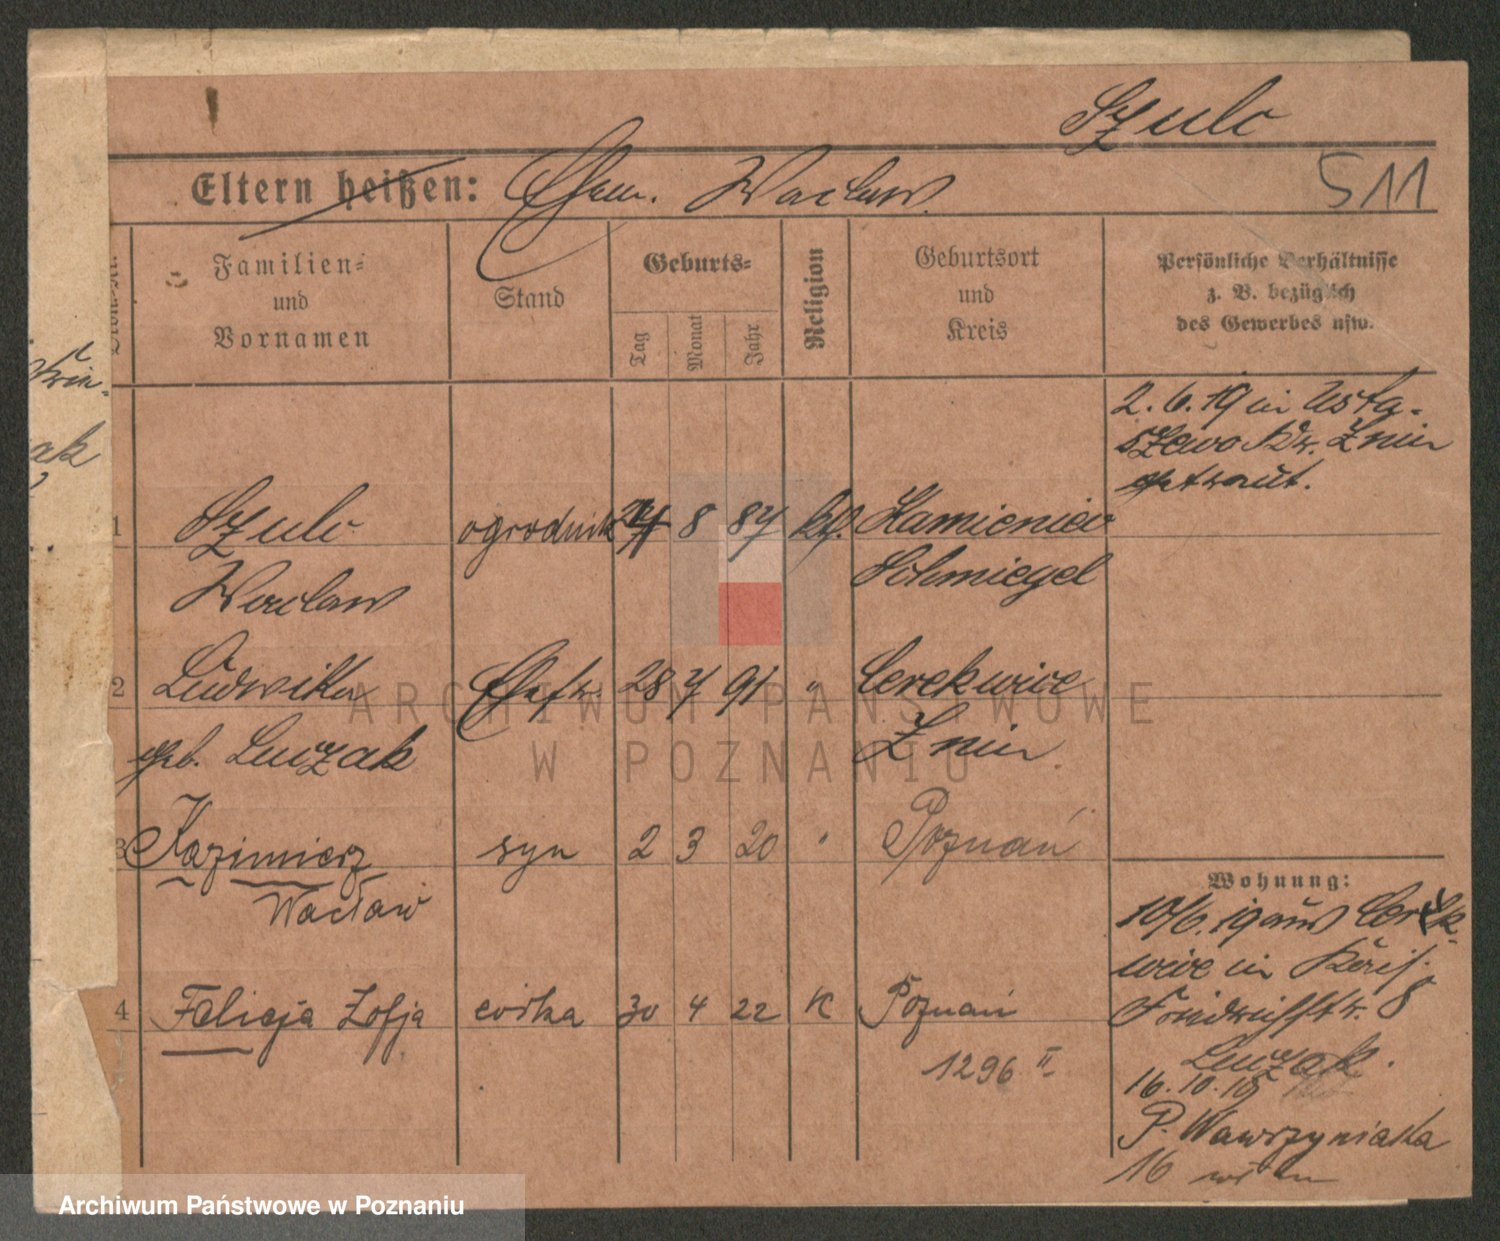 Szulc
Eltern heißen: Ehem. Wacław.
511
Familien-
und
Vornamen
Stand
Geburts-
Tag
Monat
Jahr
Religion
Geburtsort
und
Kreis
Persönliche Verhältnisse
z. B. bezüglich
des Gewerbes usw.
2.6.19 in Usta-
szewo Kr. Znin
getraut.
1 Szulc ogrodnik 8 87 kł. Kamieniec
Wacław Schmiegel
2 Ludwika Ehefr. 28 7 91 " Cerekwice
geb. Luczak Znin
3 Kazimierz syn 2 3 20 " Poznań
Wacław
4 Felicja Zofja córka 30 4 22 K Poznań
1296 II
Wohnung:
10/6.19 aus Cerek-
wice in
Friedrichstr. 8
Luczak.
16.10.19
P. Wawrzyniaka
16
ak
ARCHIWUM PAŃSTWOWE
W POZNANIU
Archiwum Państwowe w Poznaniu